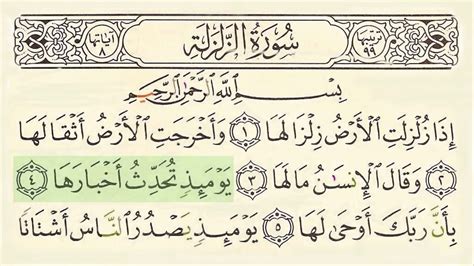 ترتيبها ٩٩ سُورَةُ الزَّلْزَلَةِ آياتها ٨
بِسْمِ اللَّهِ الرَّحْمَٰنِ الرَّحِيمِ
إِذَا زُلْزِلَتِ الْأَرْضُ زِلْزَالَهَا ١ وَأَخْرَجَتِ الْأَرْضُ أَثْقَالَهَا
٢ وَقَالَ الْإِنسَٰنُ مَا لَهَا ٣ يَوْمَئِذٍ تُحَدِّثُ أَخْبَارَهَا ٤
بِأَنَّ رَبَّكَ أَوْحَىٰ لَهَا ٥ يَوْمَئِذٍ يَصْدُرُ النَّاسُ أَشْتَاتًا